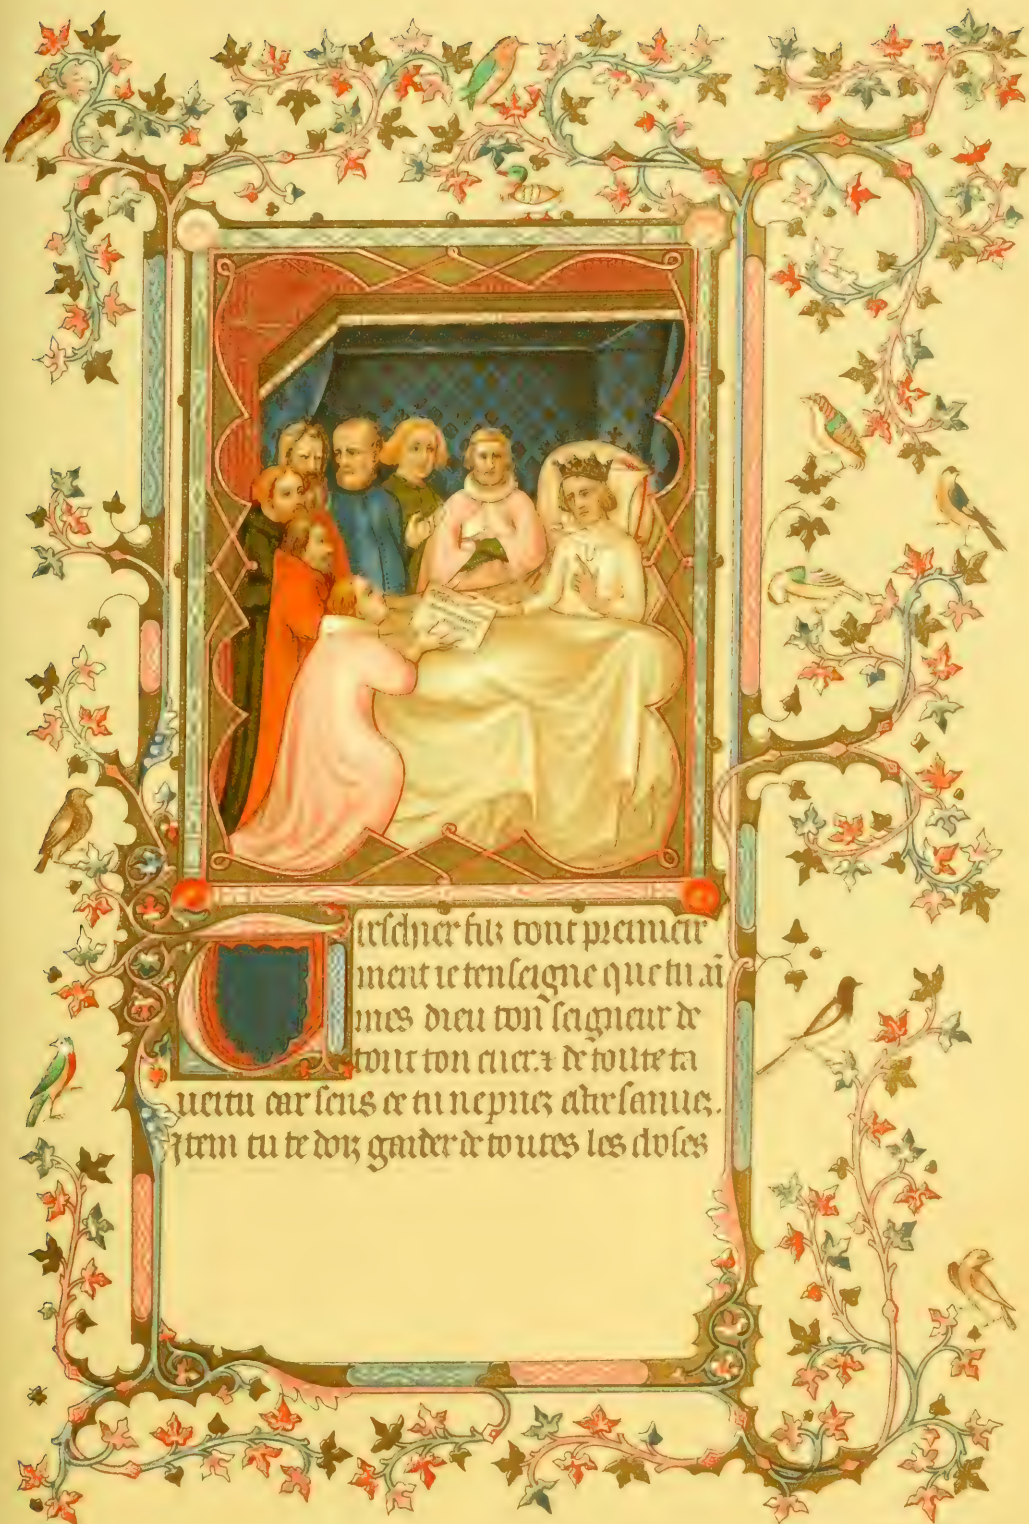 Treschier filz tout premieir
ment ie tenseigne que tu ai
mes dieu ton seigneur de
tout ton cuer. ⁊ de toute ta
uertu car sens ce tu ne puez estre sauuez.
Item tu te doiz garder de toutes les choses